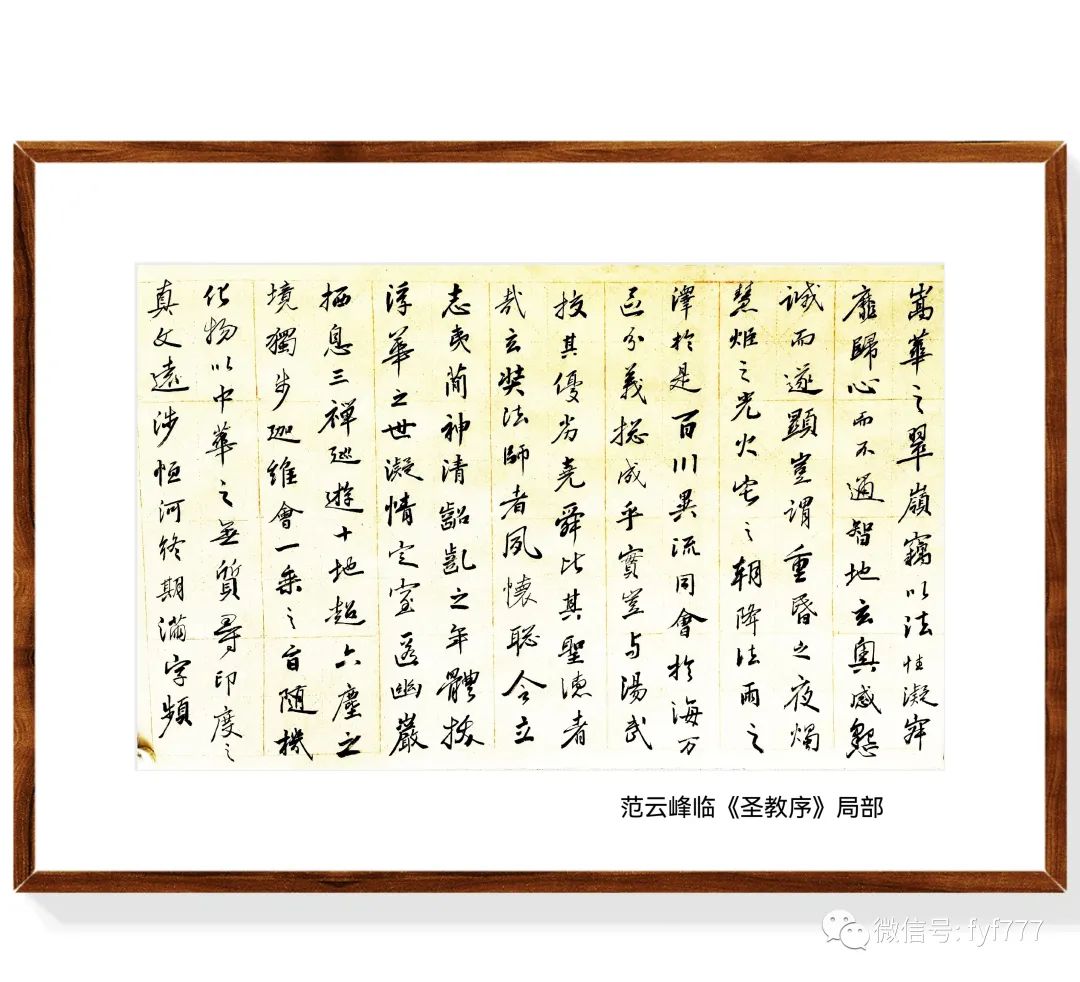 嵩華之翠嶺竊以法性凝寂
靡歸心而不通智地玄奧感懇
誠而遂顯豈謂重昏之夜燭
慧炬之光火宅之朝降法雨之
澤於是百川異流同會於海万
區分義揔成乎實豈与湯武
挍其優劣堯舜比其聖德者
哉玄奘法師者夙懷聰令立
志夷簡神清齠齔之年體拔
浮華之世凝情定室匿幽巖
栖息三禪巡遊十地超六塵之
境獨步迦維會一乘之旨随機
化物以中華之無質尋印度之
真文遠涉恒河終期滿字頻
范云峰临《圣教序》局部
微信号: fyf777